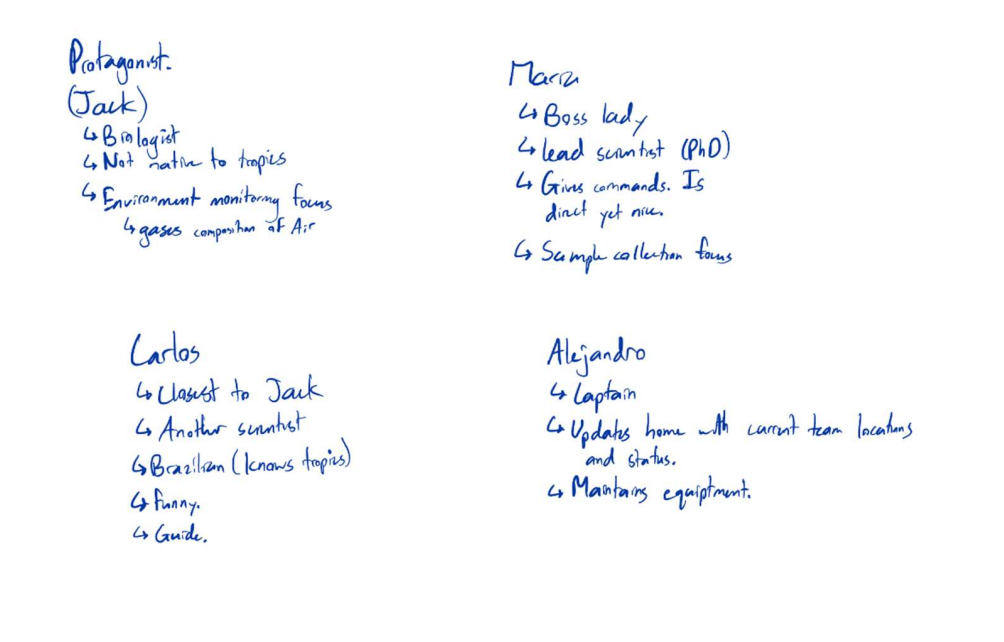 Protagonist.
(Jack)
↳ Biologist
↳ Not native to tropics
↳ Environment monitoring focus
↳ gases composition of Air
Maria
↳ Boss lady
↳ lead scientist (PhD)
↳ Gives commands. Is
direct yet nice.
↳ Sample collection focus
Carlos
↳ Closest to Jack
↳ Another scientist
↳ Brazilian (knows tropics)
↳ Funny.
↳ Guide.
Alejandro
↳ Captain
↳ Updates home with current team locations
and status.
↳ Maintains equiptment.